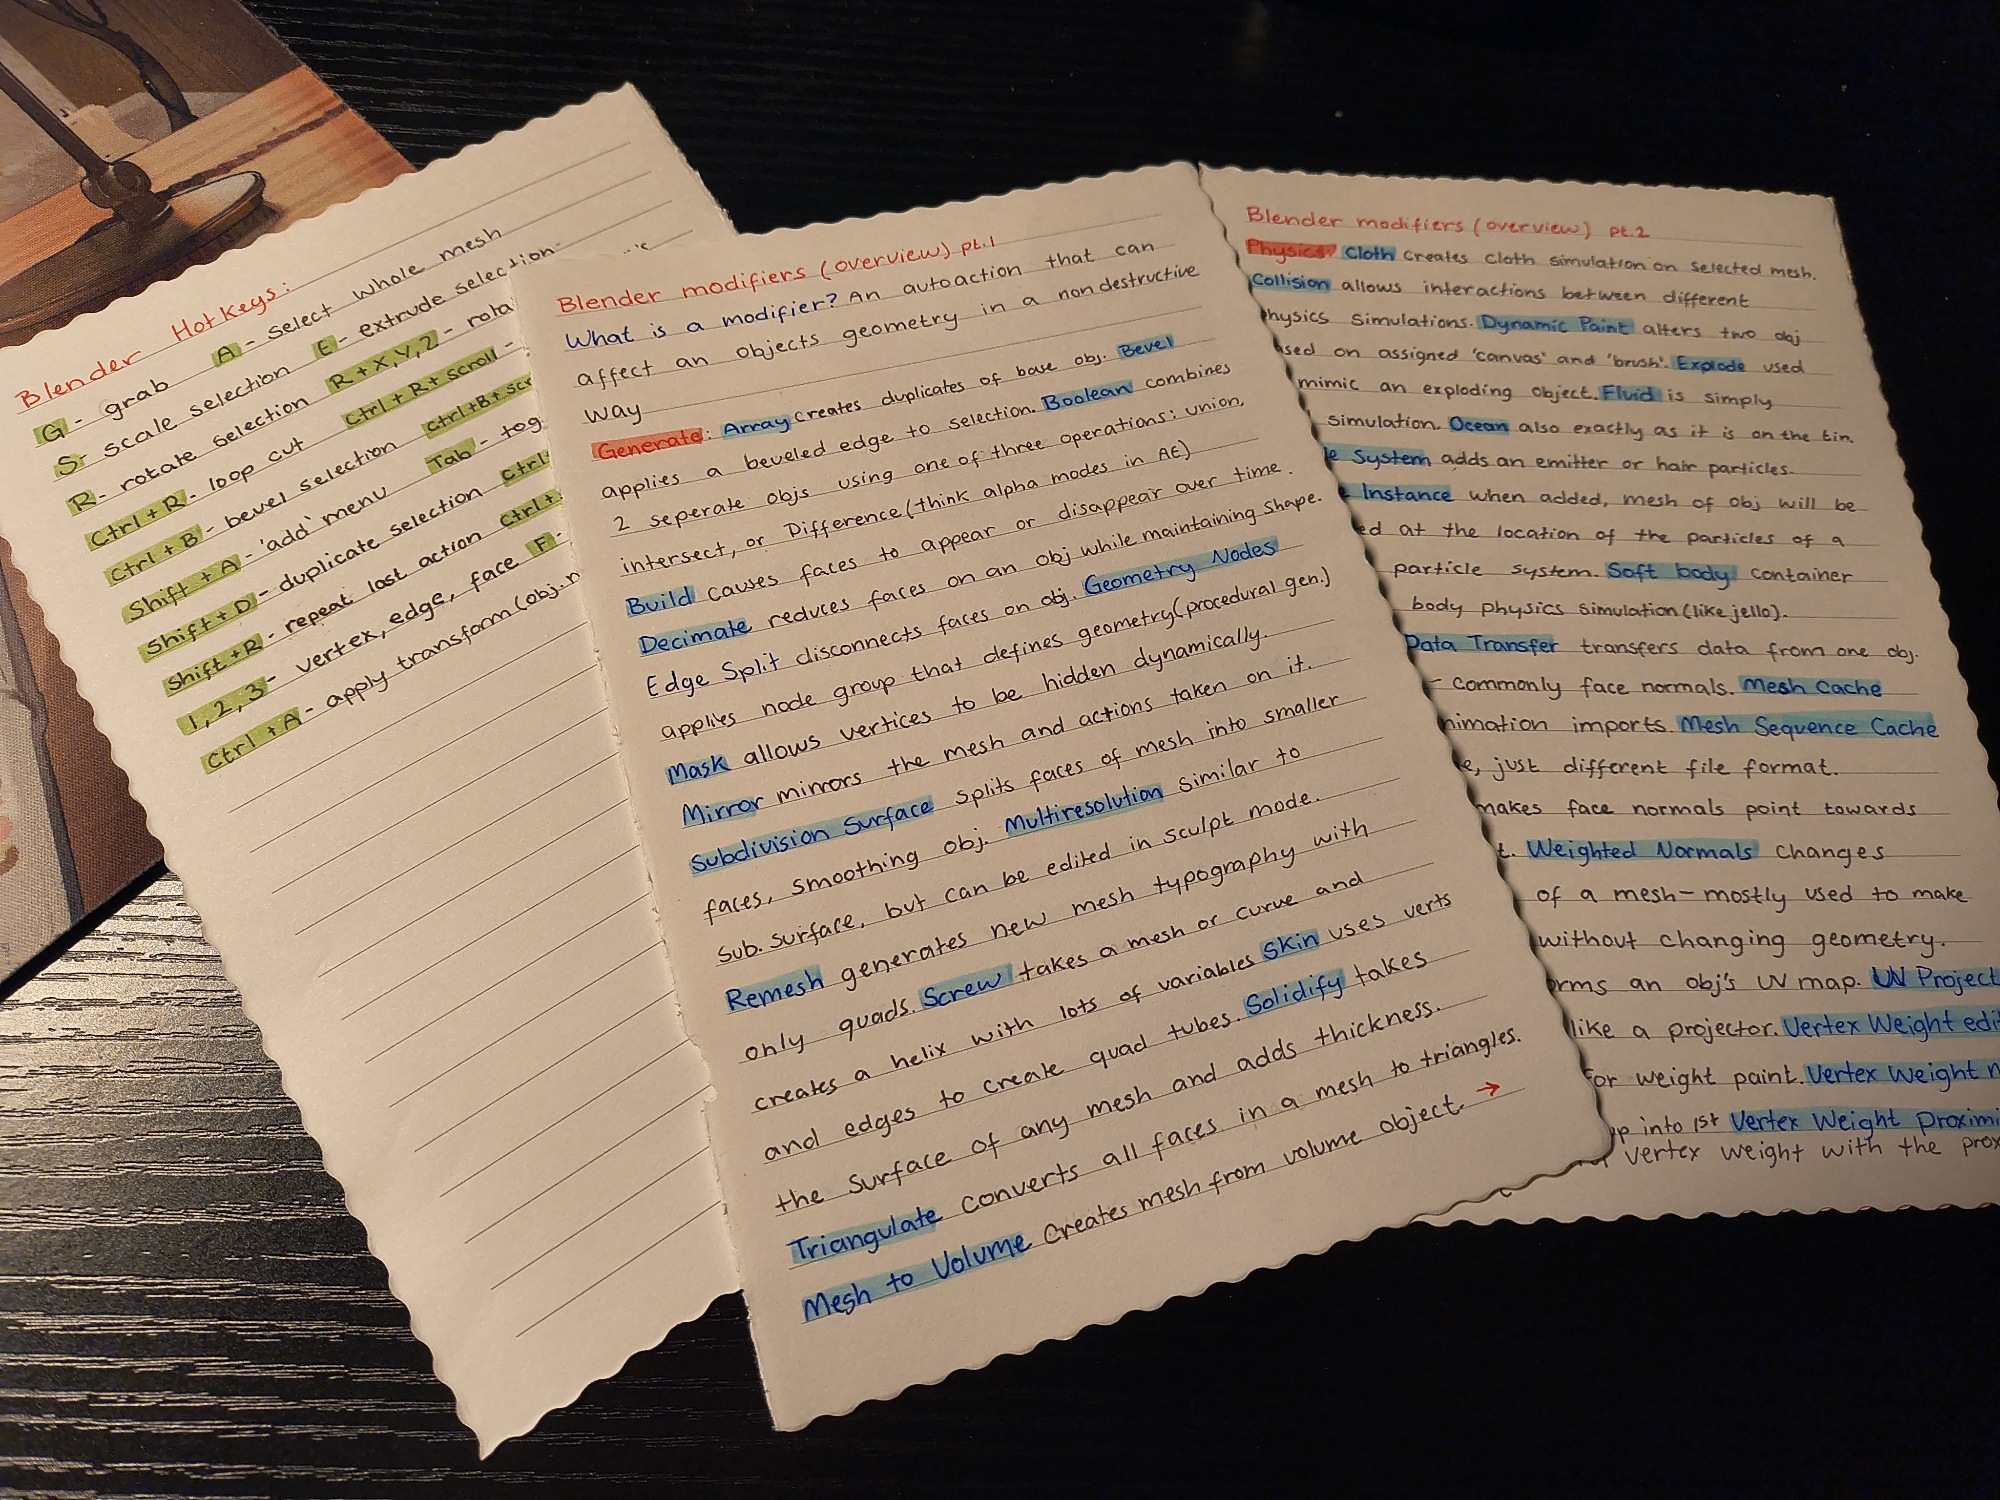 Blender Hotkeys:
G - grab A - select whole mesh
S - scale selection E - extrude selection
R - rotate selection R + X, Y, Z - rota
Ctrl + R - loop cut Ctrl + R + scroll -
Ctrl + B - bevel selection Ctrl + B + scr
Shift + A - 'add' menu Tab - tog
Shift + D - duplicate selection Ctrl
Shift + R - repeat last action Ctrl +
1, 2, 3 - vertex, edge, face F -
Ctrl + A - apply transform (obj.
Blender modifiers (overview) pt.1
What is a modifier? An autoaction that can
affect an objects geometry in a nondestructive
way
Generate: Array creates duplicates of base obj. Bevel
applies a beveled edge to selection. Boolean combines
2 seperate objs using one of three operations: union,
intersect, or Difference (think alpha modes in AE)
Build causes faces to appear or disappear over time.
Decimate reduces faces on an obj while maintaining shape.
Edge Split disconnects faces on obj. Geometry Nodes
applies node group that defines geometry (procedural gen.)
Mask allows vertices to be hidden dynamically.
Mirror mirrors the mesh and actions taken on it.
Subdivision Surface splits faces of mesh into smaller
faces, smoothing obj. Multiresolution similar to
sub. surface, but can be edited in sculpt mode.
Remesh generates new mesh typography with
only quads. Screw takes a mesh or curve and
creates a helix with lots of variables Skin uses verts
and edges to create quad tubes. Solidify takes
the surface of any mesh and adds thickness.
Triangulate converts all faces in a mesh to triangles.
Mesh to Volume creates mesh from volume object. →
Blender modifiers (overview) pt.2
Physics: Cloth creates cloth simulation on selected mesh.
Collision allows interactions between different
physics simulations. Dynamic Paint alters two obj
ased on assigned 'canvas' and 'brush'. Explode used
mimic an exploding object. Fluid is simply
simulation. Ocean also exactly as it is on the tin.
le System adds an emitter or hair particles.
e Instance when added, mesh of obj will be
ed at the location of the particles of a
particle system. Soft body container
body physics simulation (like jello).
Data Transfer transfers data from one obj.
- commonly face normals. Mesh Cache
nimation imports. Mesh Sequence Cache
e, just different file format.
makes face normals point towards
t. Weighted Normals changes
of a mesh - mostly used to make
without changing geometry.
orms an obj's UV map. UV Project
like a projector. Vertex Weight edi
for weight paint. Vertex Weight
up into 1st Vertex Weight Proximi
vertex weight with the prox